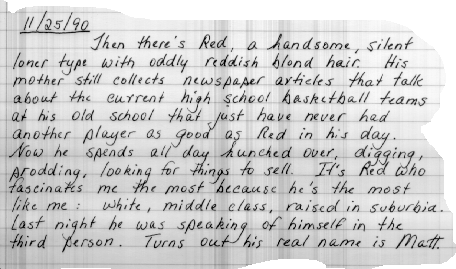 11/25/90
Then there's Red, a handsome, silent
loner type with oddly reddish blond hair. His
mother still collects newspaper articles that talk
about the current high school basketball teams
at his old school that just have never had
another player as good as Red in his day.
Now he spends all day hunched over, digging,
prodding, looking for things to sell. It's Red who
fascinates me the most because he's the most
like me: white, middle class, raised in suburbia.
Last night he was speaking of himself in the
third person. Turns out his real name is Matt.